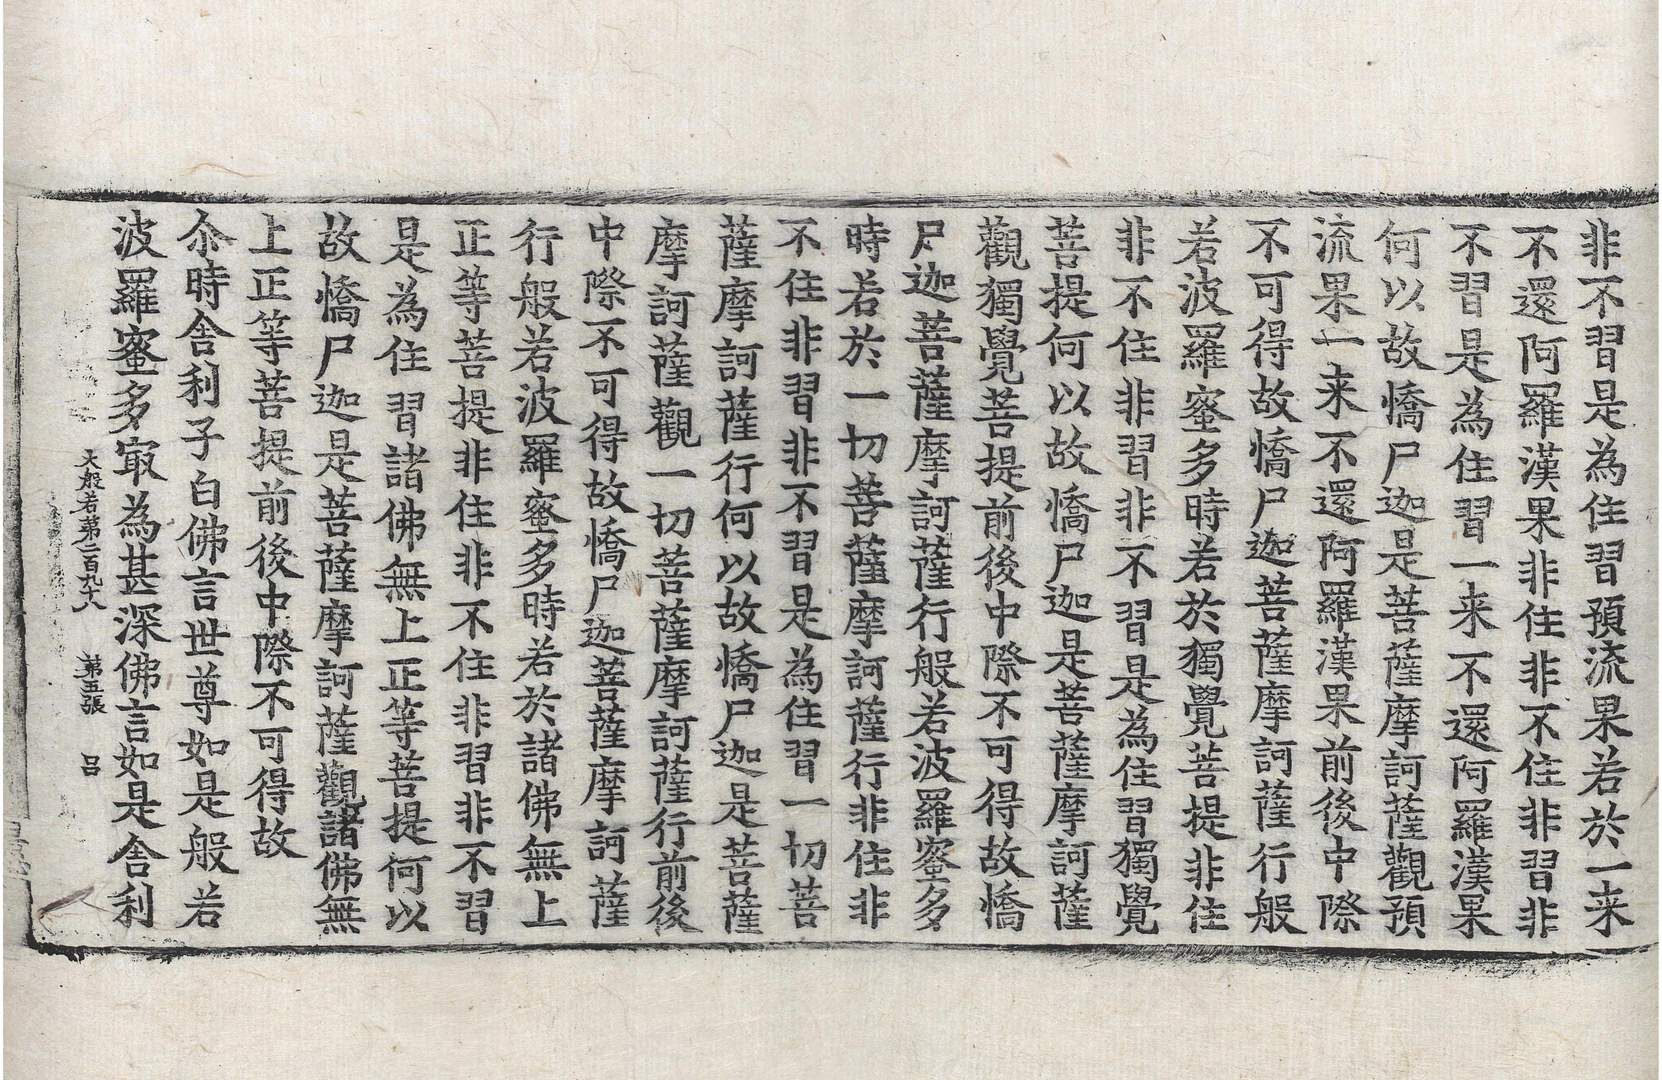 非不習是為住習預流果若於一来
不還阿羅漢果非住非不住非習非
不習是為住習一来不還阿羅漢果
何以故憍尸迦是菩薩摩訶薩觀預
流果一来不還阿羅漢果前後中際
不可得故憍尸迦菩薩摩訶薩行般
若波羅蜜多時若於獨覺菩提非住
非不住非習非不習是為住習獨覺
菩提何以故憍尸迦是菩薩摩訶薩
觀獨覺菩提前後中際不可得故憍
尸迦菩薩摩訶薩行般若波羅蜜多
時若於一切菩薩摩訶薩行非住非
不住非習非不習是為住習一切菩
薩摩訶薩行何以故憍尸迦是菩薩
摩訶薩觀一切菩薩摩訶薩行前後
中際不可得故憍尸迦菩薩摩訶薩
行般若波羅蜜多時若於諸佛無上
正等菩提非住非不住非習非不習
是為住習諸佛無上正等菩提何以
故憍尸迦是菩薩摩訶薩觀諸佛無
上正等菩提前後中際不可得故
尒時舍利子白佛言世尊如是般若
波羅蜜多㝡為甚深佛言如是舍利
大般若第二百九十八 第五張 吕